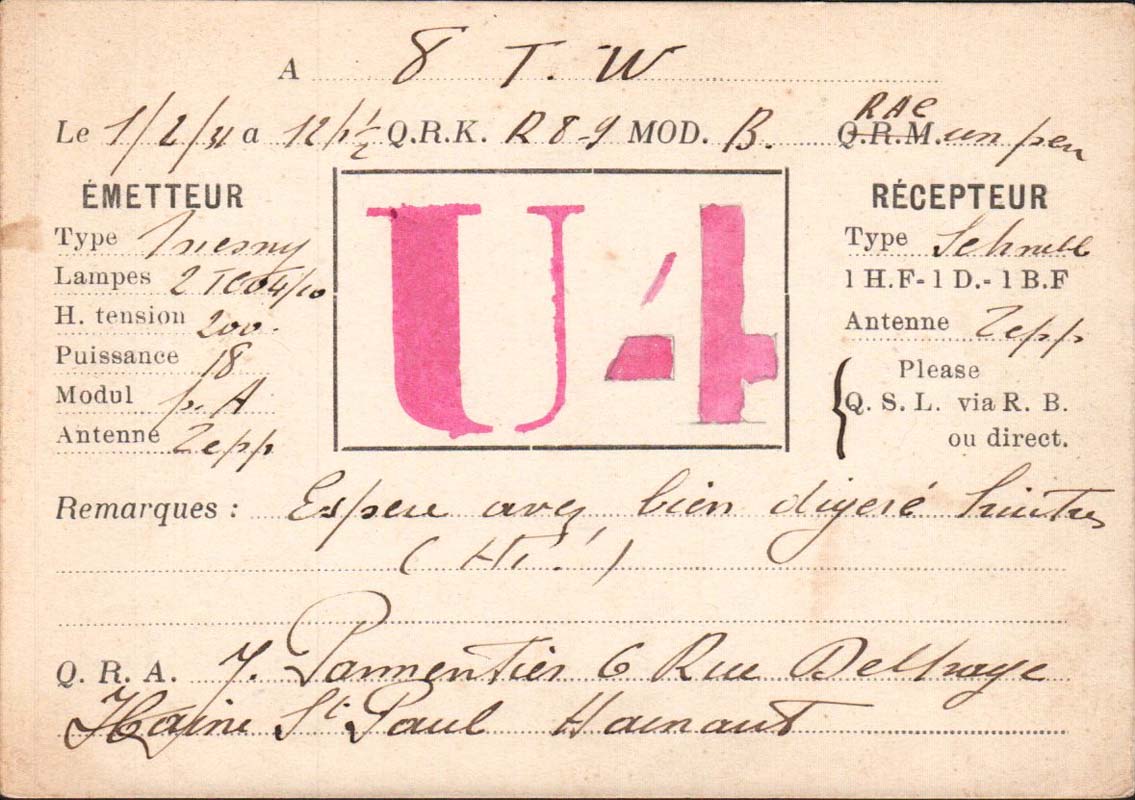 A 8 T. W
Le 1/2/31 a 12h½ Q.R.K. R 8-9 MOD. B. Q.R.M. RAC un peu
ÉMETTEUR
Type Mesny
Lampes 2 TC04/10
H. tension 200.
Puissance 18
Modul p. A
Antenne Zepp
U-4
RÉCEPTEUR
Type Schnell
1 H.F- 1 D.- 1 B.F
Antenne Zepp
Please
Q. S. L. via R. B.
ou direct.
Remarques : Espere avez bien digeré huitres
(Hi!)
Q. R. A. J. Parmentier 6 Rue Delhaye
Haine St. Paul Hainaut